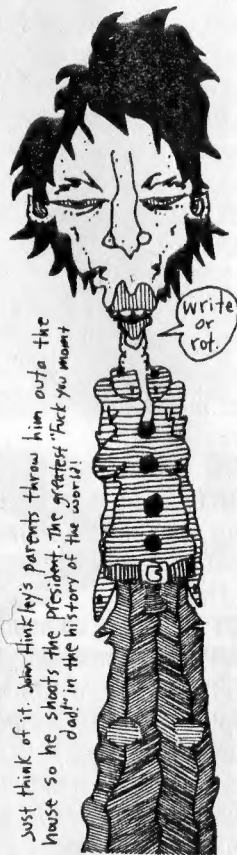 write
or
rot.
Just think of it. John Hinkley's parents throw him outa the
house so he shoots the president. The greatest "Fuck you mom n'
dad!" in the history of the world!